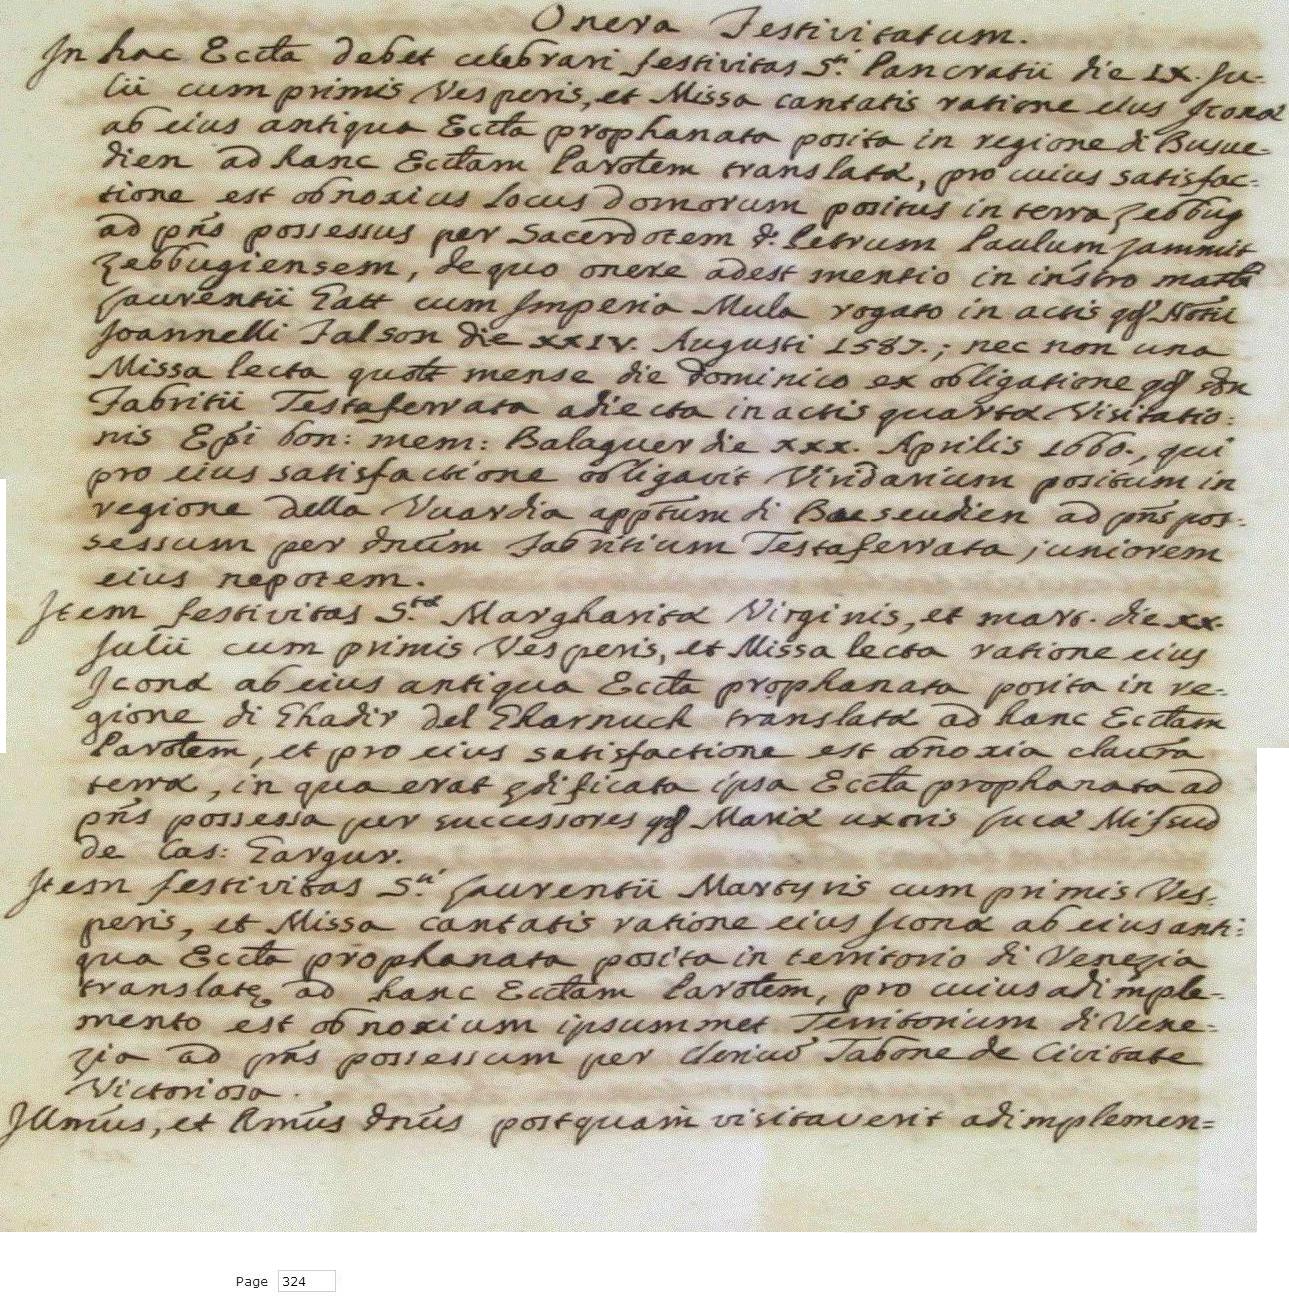 Onera Festivitatum.
In hac Eccta debet celebrari festivitas S.ti Pancratii die IX. Ju-
lii cum primis Vesperis, et Missa cantatis ratione eius Iconæ
ab eius antiqua Eccta prophanata posita in regione di Busue-
dien ad hanc Ecctam Parotem translatæ, pro cuius satisfac-
tione est obnoxius locus domorum positus in terra Zebbug
ad pns possessus per Sacerdotem D. Petrum Paulum Zammit
Zebbugiensem, de quo onere adest mentio in instro matli
Laurentii Gatt cum Imperia Mula rogato in actis qd Notii
Joannelli Falson die XXIV. Augusti 1587.; nec non una
Missa lecta quolt mense die dominico ex obligatione qd
Fabritii Testaferrata adiecta in actis quartæ Visitatio:
nis Epi bon: mem: Balaguer die XXX. Aprilis 1660., qui
pro eius satisfactione obligavit Viridarium positum in
regione della Vuardia apptum di Baeseudien ad pns pos-
sessum per dnum Fabritium Testaferrata juniorem
eius nepotem.
Item festivitas S.tæ Margharitæ Virginis, et mart. die XX.
Julii cum primis Vesperis, et Missa lecta ratione eius
Iconæ ab eius antiqua Eccta prophanata posita in re-
gione di Ghadir del Gharnuch translatæ ad hanc Ecctam
Parotem, et pro eius satisfactione est obnoxia clausa
terræ, in qua erat ędificata ipsa Eccta prophanata ad
pns possessa per successores qd Mariæ uxoris Lucæ Mifsud
de Cas: Gargur.
Item festivitas S.ti Laurentii Martyris cum primis Ves-
peris, et Missa cantatis ratione eius Iconæ ab eius anti:
qua Eccta prophanata posita in territorio di Venezia
translatę ad hanc Ecctam Parotem, pro cuius adimple-
mento est obnoxium ipsummet Territorium di Vene-
zia ad pns possessum per Tabone de Civitate
Victoriosa.
Illmus, et Rmus dnus postquam visitaverit adimplemen=
Page 324